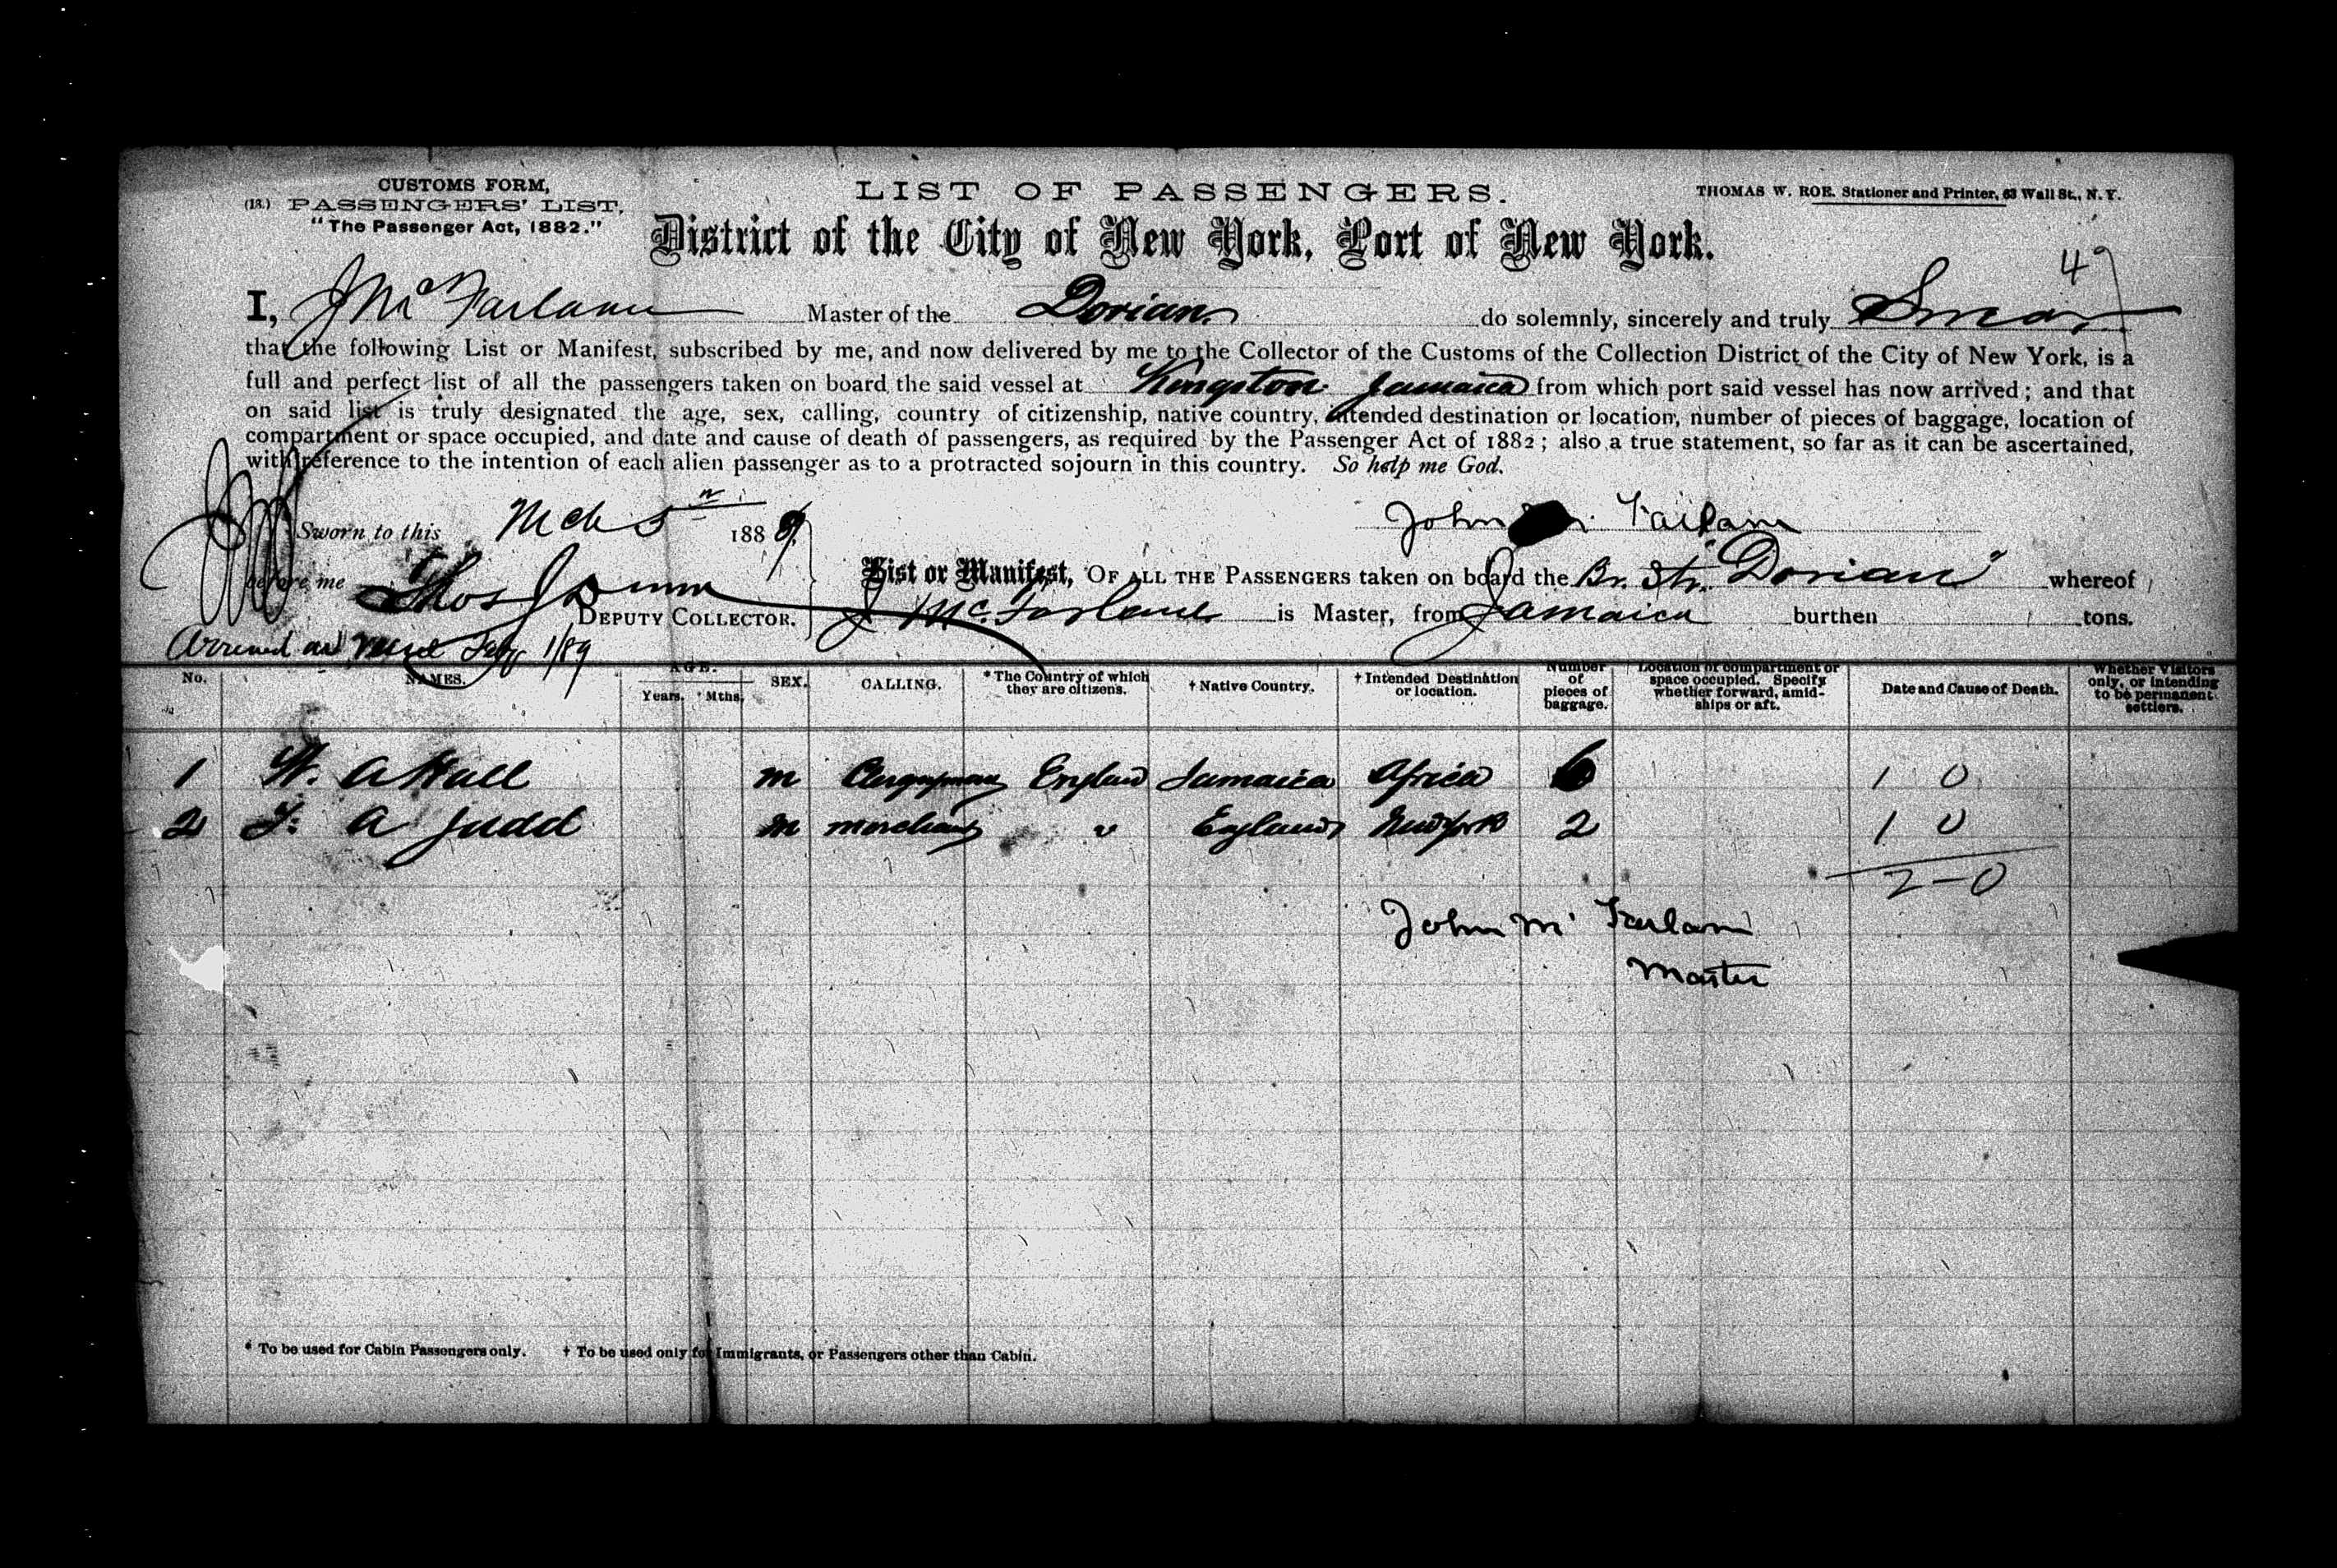 CUSTOMS FORM,
(18.) PASSENGERS' LIST,
"The Passenger Act, 1882."
LIST OF PASSENGERS.
THOMAS W. ROE, Stationer and Printer, 63 Wall St., N. Y.
District of the City of New York, Port of New York.
I, J McFarlane Master of the Dorian do solemnly, sincerely and truly Swear
that the following List or Manifest, subscribed by me, and now delivered by me to the Collector of the Customs of the Collection District of the City of New York, is a
full and perfect list of all the passengers taken on board the said vessel at Kingston Jamaica from which port said vessel has now arrived; and that
on said list is truly designated the age, sex, calling, country of citizenship, native country, intended destination or location, number of pieces of baggage, location of
compartment or space occupied, and date and cause of death of passengers, as required by the Passenger Act of 1882; also a true statement, so far as it can be ascertained,
with reference to the intention of each alien passenger as to a protracted sojourn in this country. So help me God.
Sworn to this Mch 5th 1889
John Mc Farlane
before me Thos
DEPUTY COLLECTOR.
List or Manifest, OF ALL THE PASSENGERS taken on board the Br. Str. "Dorian" whereof
J McFarlane is Master, from Jamaica burthen tons.
Arrived 1/89
No. NAMES. AGE. Years. Mths. SEX. CALLING. * The Country of which they are citizens. † Native Country. † Intended Destination or location. Number of pieces of baggage. Location of compartment or space occupied. Specify whether forward, amidships or aft. Date and Cause of Death. Whether Visitors only, or intending to be permanent settlers.
1 W. A Hall m Clergyman England Jamaica Africa 6 1 0
2 F. A Judd m merchant " England New York 2 1 0
2-0
John Mc Farlane
Master
* To be used for Cabin Passengers only. † To be used only for Immigrants, or Passengers other than Cabin.